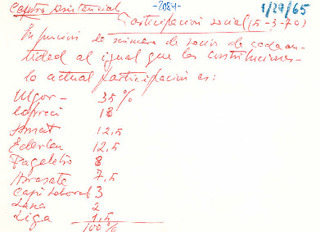 Centro Asistencial -2024- 1/29/65
Participación social (5-3-70)
En función de número de socios de cada en-
tidad al igual que las contribuciones
la actual participación es:
Ulgor - 35 %
Copreci 18
Amat 12,5
Ederlan 12,5
Fagelectro 8
Arrasate 7,5
Capi laboral 3
Lana 2
Liga 1,5
100 %